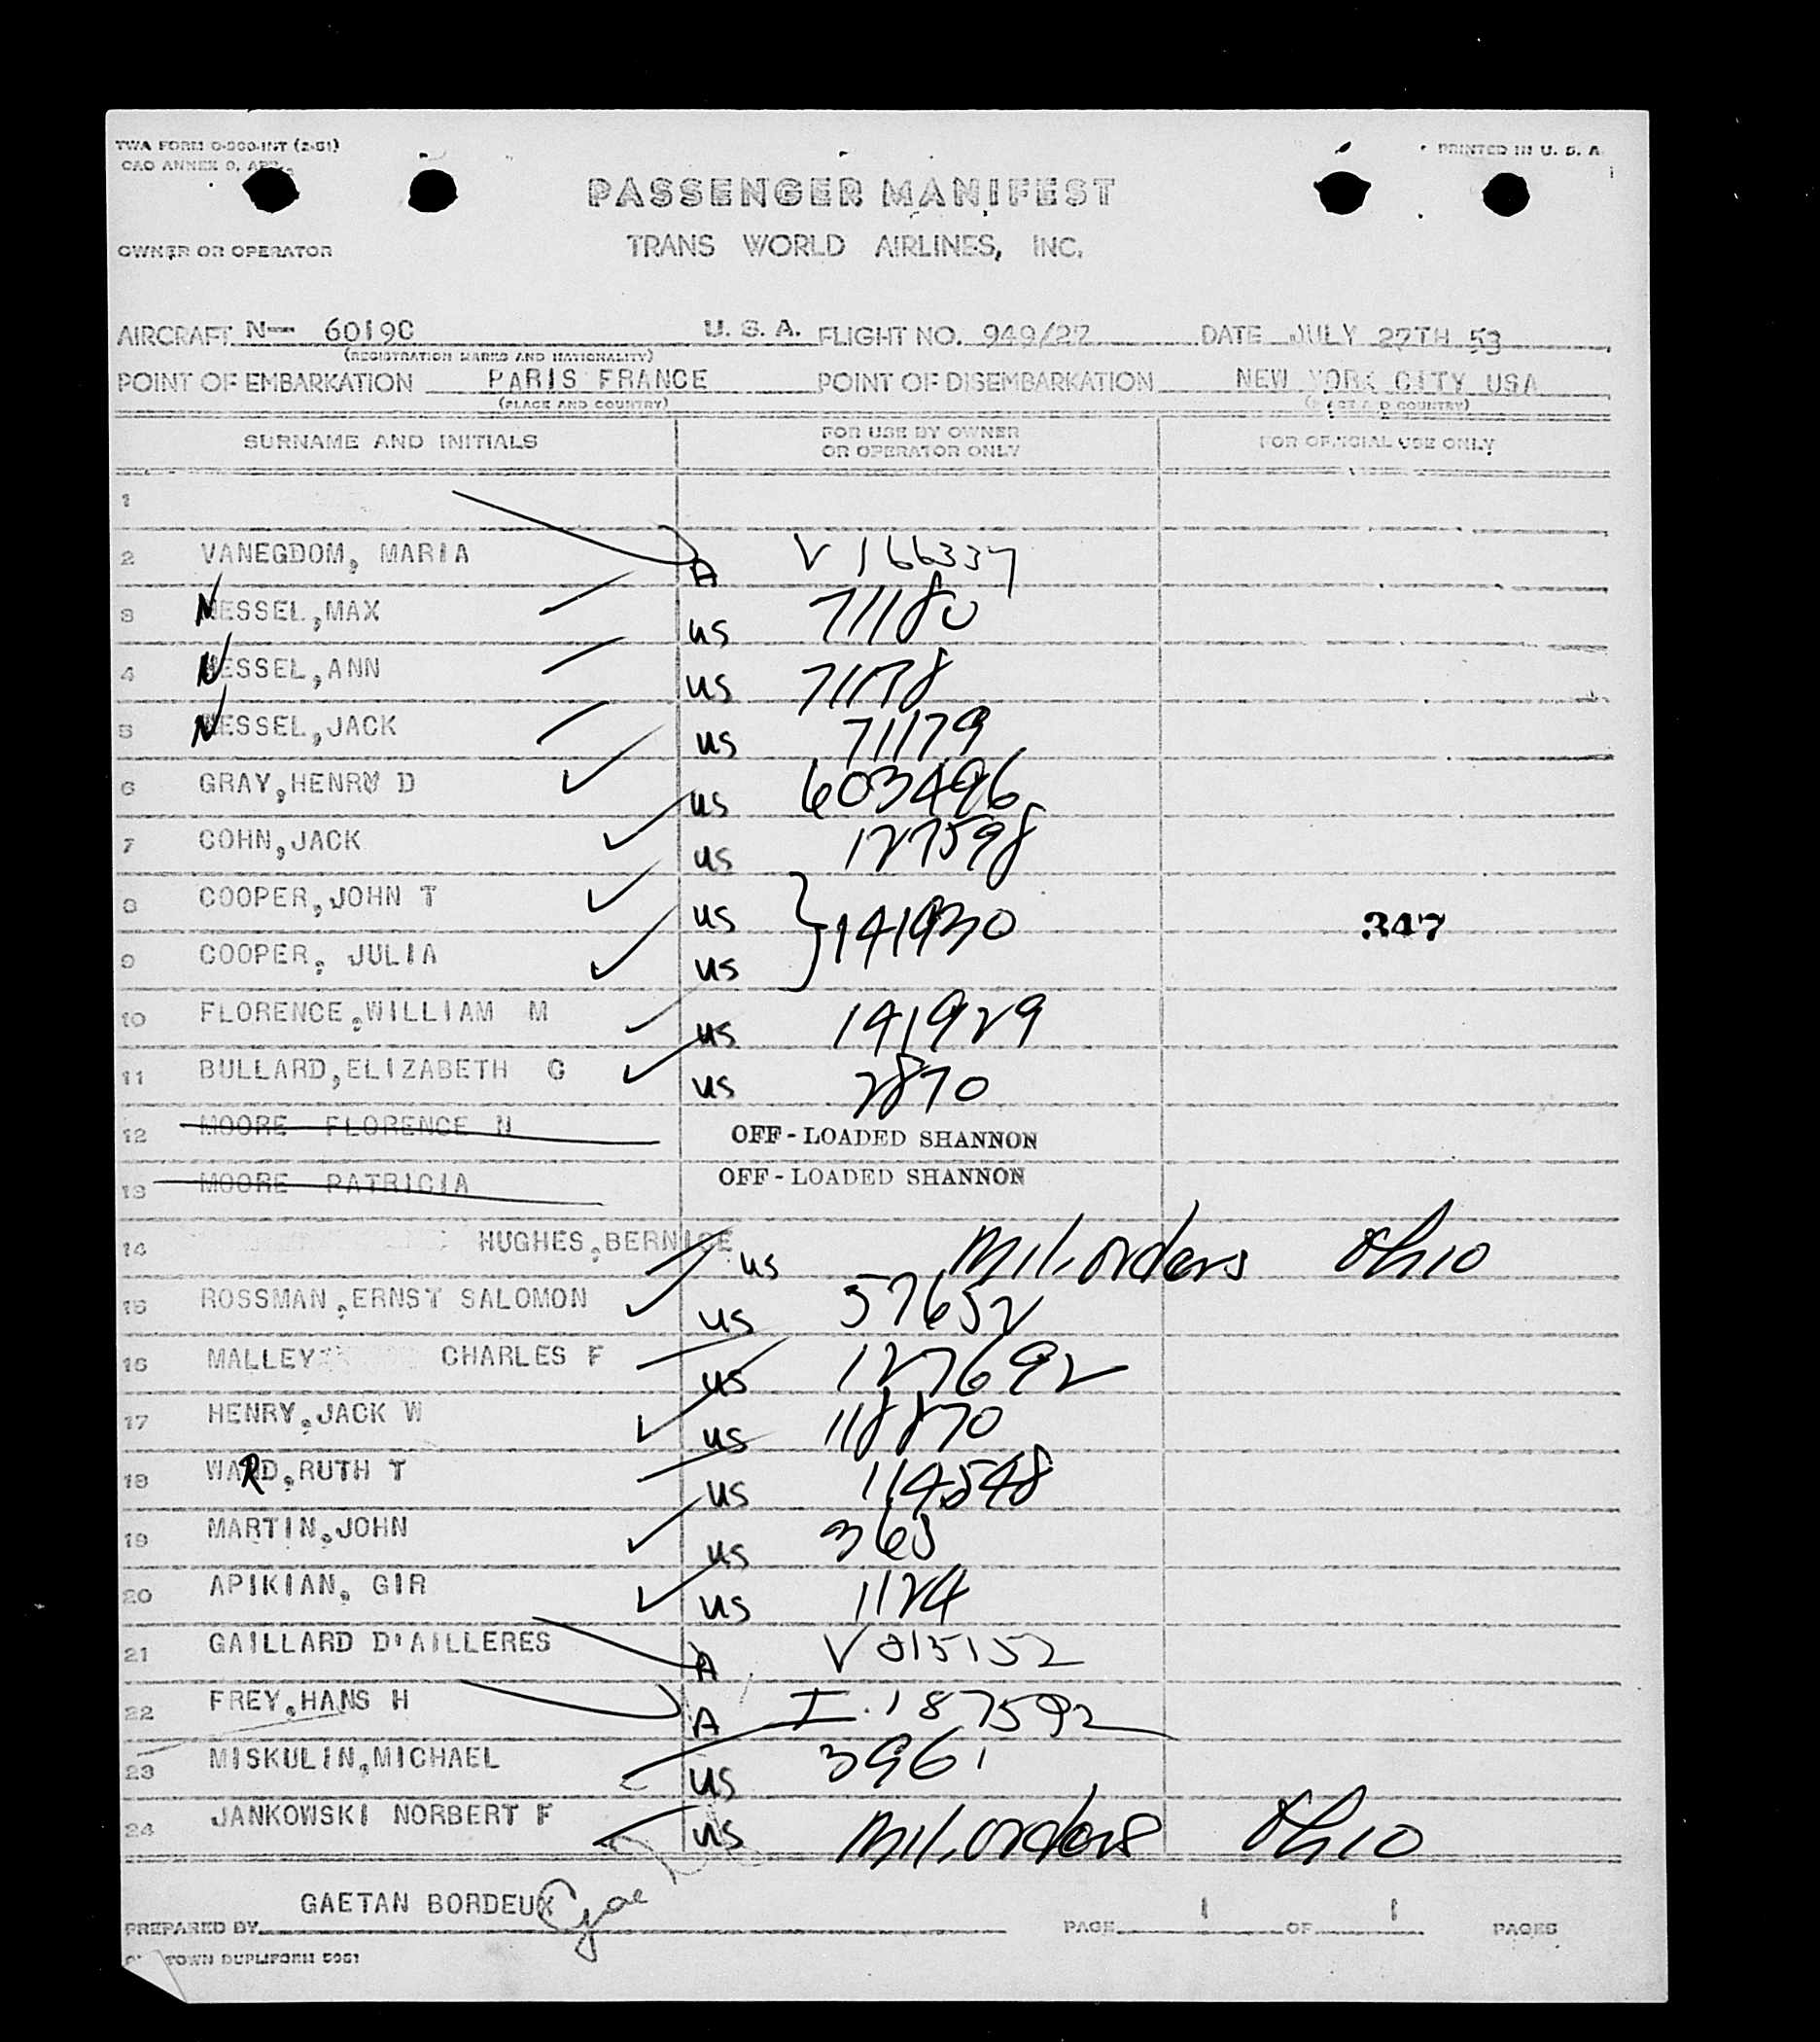 TWA FORM O-300-INT (2-51)
PRINTED IN U. S. A.
CAO ANNEX 9, APP.
PASSENGER MANIFEST
OWNER OR OPERATOR
TRANS WORLD AIRLINES, INC.
AIRCRAFT N— 6019C U. S. A. FLIGHT NO. 949/27 DATE JULY 27TH 53
(REGISTRATION MARKS AND NATIONALITY)
POINT OF EMBARKATION PARIS FRANCE POINT OF DISEMBARKATION NEW YORK CITY USA
(PLACE AND COUNTRY) (PLACE AND COUNTRY)
SURNAME AND INITIALS FOR USE BY OWNER OR OPERATOR ONLY FOR OFFICIAL USE ONLY
1
2 VANEGDOM, MARIA A V 166337
3 NESSEL,MAX us 71180
4 NESSEL,ANN us 71178
5 NESSEL,JACK us 71179
6 GRAY,HENRY D us 603496
7 COHN,JACK us 127598
8 COOPER,JOHN T us 141930
347
9 COOPER, JULIA us
10 FLORENCE,WILLIAM M us 141929
11 BULLARD,ELIZABETH G us 2870
12 MOORE FLORENCE N OFF-LOADED SHANNON
13 MOORE PATRICIA OFF-LOADED SHANNON
14 HUGHES,BERNICE us Mil. orders Ohio
15 ROSSMAN,ERNST SALOMON us 57652
16 MALLEY CHARLES F us 127692
17 HENRY,JACK W us 118870
18 WARD,RUTH T us 114548
19 MARTIN,JOHN us 365
20 APIKIAN, GIR us 1124
21 GAILLARD D'AILLERES A V 015152
22 FREY,HANS H A I. 187592
23 MISKULIN,MICHAEL us 3961
24 JANKOWSKI NORBERT F us Mil. orders Ohio
GAETAN BORDEUX
PREPARED BY PAGE 1 OF 1 PAGES
TOWN DUPLIFORM 5951